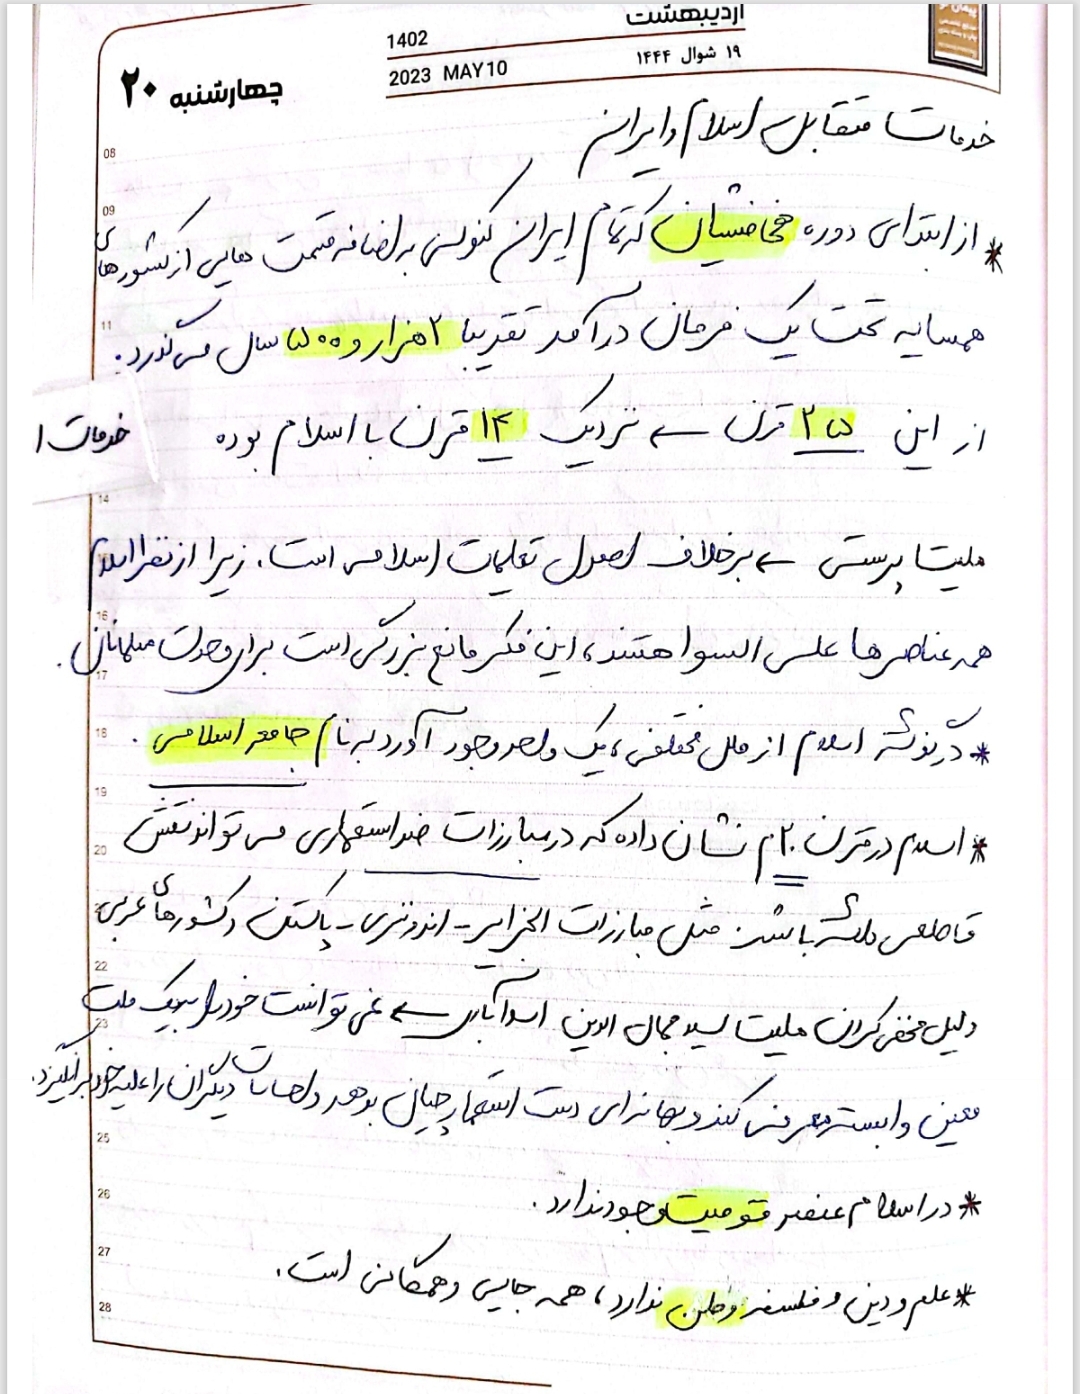 اردیبهشت
1402
۱۹ شوال ۱۴۴۴
2023 MAY 10
چهارشنبه ۲۰
خدمات متقابل اسلام و ایران
* از ابتدای دوره هخامنشیان که تمام ایران کنونی به اضافه قسمت هایی از کشورهای
همسایه تحت یک فرمان درآمد تقریبا ۲ هزار و ۵۰۰ سال می گذرد.
از این ۲۵ قرن ← نزدیک ۱۴ قرن با اسلام بوده
خدمات ا
ملیت پرستی ← برخلاف اصول تعلیمات اسلامی است. زیرا از نظر اسلام
همه عناصرها علی السوا هستند، این فکر مانع بزرگی است برای وحدت مسلمانان.
* در گذشته اسلام از ملل مختلفی، یک واحد وجود آورد به نام جامعه اسلامی.
* اسلام در قرن ۲۰م نشان داده که در مبارزات ضد استعماری می تواند نقش
قاطعی داشته باشد. مثل مبارزات الجزایر - اندونزی - پاکستان و کشورهای عربی
دلیل مخفی کردن ملیت سید جمال الدین اسدآبادی ← نمی توانست خود را به یک ملت
معین وابسته معرفی کند و بهانه ای دست استعمارچیان بدهد و احساسات دیگران را علیه خود برانگیزد.
* در اسلام عنصر قومیت وجود ندارد.
* علم و دین و فلسفه وطن ندارد، همه جایی و همگانی است.
08
09
11
14
16
17
18
19
20
22
23
25
26
27
28